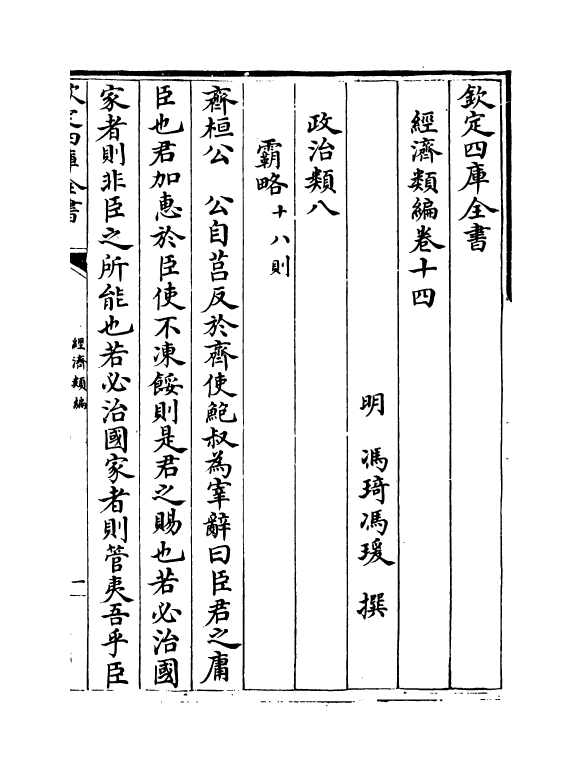 欽定四庫全書
經濟類編卷十四
明 馮琦馮瑗 撰
政治類八
霸略十八則
齊桓公 公自莒反於齊使鮑叔為宰辭曰臣君之庸
臣也君加惠於臣使不凍餒則是君之賜也若必治國
家者則非臣之所能也若必治國家者則管夷吾乎臣
欽定四庫全書
經濟類編
一